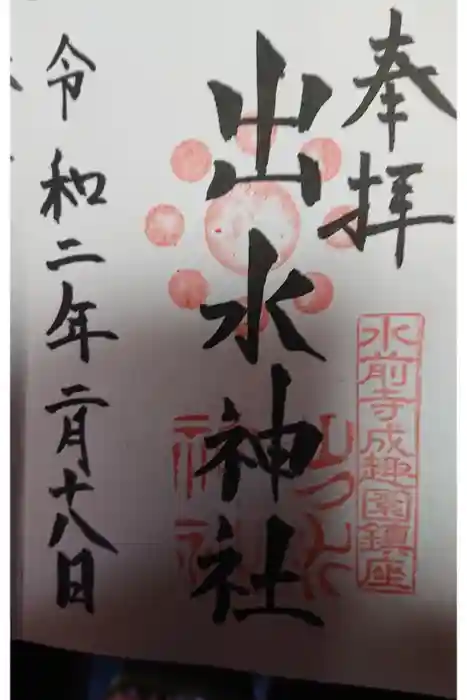 奉拝
水前寺成趣園鎮座
出水神社
令和二年二月十八日